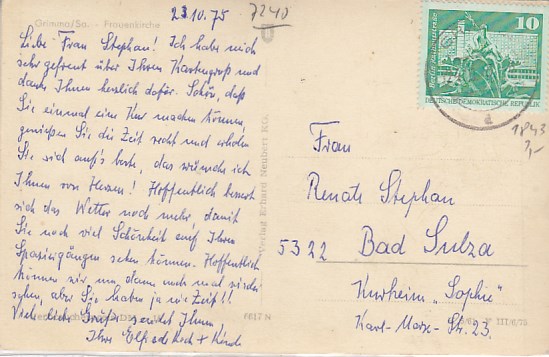 23.10.75
7240
Grimma/Sa. - Frauenkirche
Liebe Frau Stephan! Ich habe mich
sehr gefreut über Ihren Kartengruß und
danke Ihnen herzlich dafür. Schön, daß
Sie einmal eine Kur machen können,
genießen Sie die Zeit recht und erholen
Sie sich auf's beste, das wünsche ich
Ihnen von Herzen! Hoffentlich bessert
sich das Wetter noch mehr damit
Sie noch viel Schönheit auf Ihren
Spaziergängen sehen können. Hoffentlich
können wir uns dann auch mal wieder
sehen, aber Sie haben ja nie Zeit!!
Viele liebe Grüße sendet Ihnen
Ihre + Kinder
Verlag Erhard Neubert KG.
6617 N
10
DEUTSCHE DEMOKRATISCHE REPUBLIK
1843
Frau
Renate Stephan
5322 Bad Sulza
Kurheim "Sophie"
Karl-Marx-Str. 23.
III/6/75